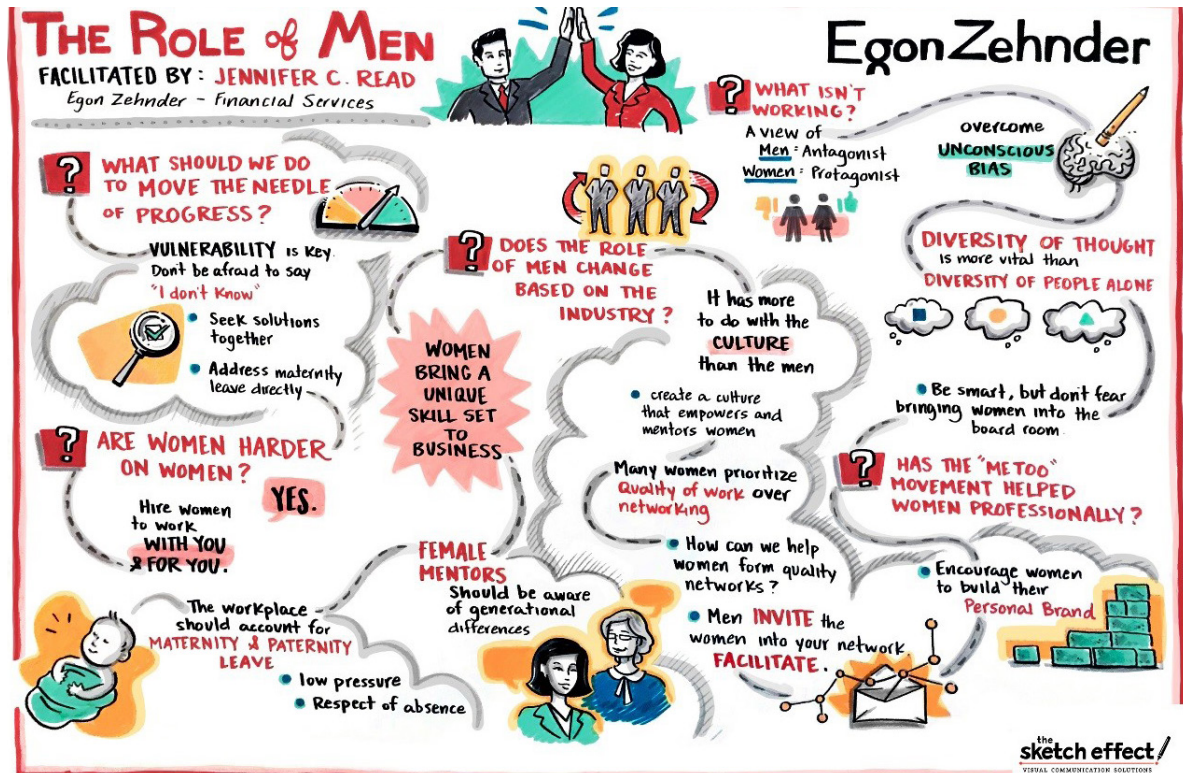 THE ROLE of MEN
FACILITATED BY: JENNIFER C. READ
Egon Zehnder - Financial Services
EgonZehnder
? WHAT SHOULD WE DO
TO MOVE THE NEEDLE
OF PROGRESS?
VULNERABILITY is key.
Don't be afraid to say
"I don't know"
• Seek solutions
together
• Address maternity
leave directly
? ARE WOMEN HARDER
ON WOMEN?
YES.
Hire women
to work
WITH YOU
& FOR YOU.
The workplace
should account for
MATERNITY & PATERNITY
LEAVE
• low pressure
• Respect of absence
FEMALE
MENTORS
Should be aware
of generational
differences
WOMEN
BRING A
UNIQUE
SKILL SET
TO
BUSINESS
? DOES THE ROLE
OF MEN CHANGE
BASED ON THE
INDUSTRY?
It has more
to do with the
CULTURE
than the men
• create a culture
that empowers and
mentors women
Many women prioritize
Quality of work over
networking
• How can we help
women form quality
networks?
• Men INVITE the
women into your network.
FACILITATE.
? WHAT ISN'T
WORKING?
A view of
Men: Antagonist
Women: Protagonist
overcome
UNCONSCIOUS
BIAS
DIVERSITY OF THOUGHT
is more vital than
DIVERSITY OF PEOPLE ALONE
• Be smart, but don't fear
bringing women into the
board room.
? HAS THE "ME TOO"
MOVEMENT HELPED
WOMEN PROFESSIONALLY?
• Encourage women
to build their
Personal Brand
the
sketch effect
VISUAL COMMUNICATION SOLUTIONS